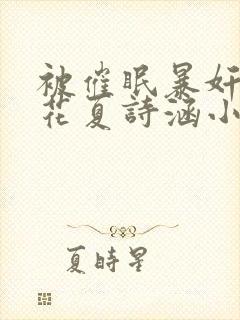 被催眠暴奸
花夏詩涵小
夏時星